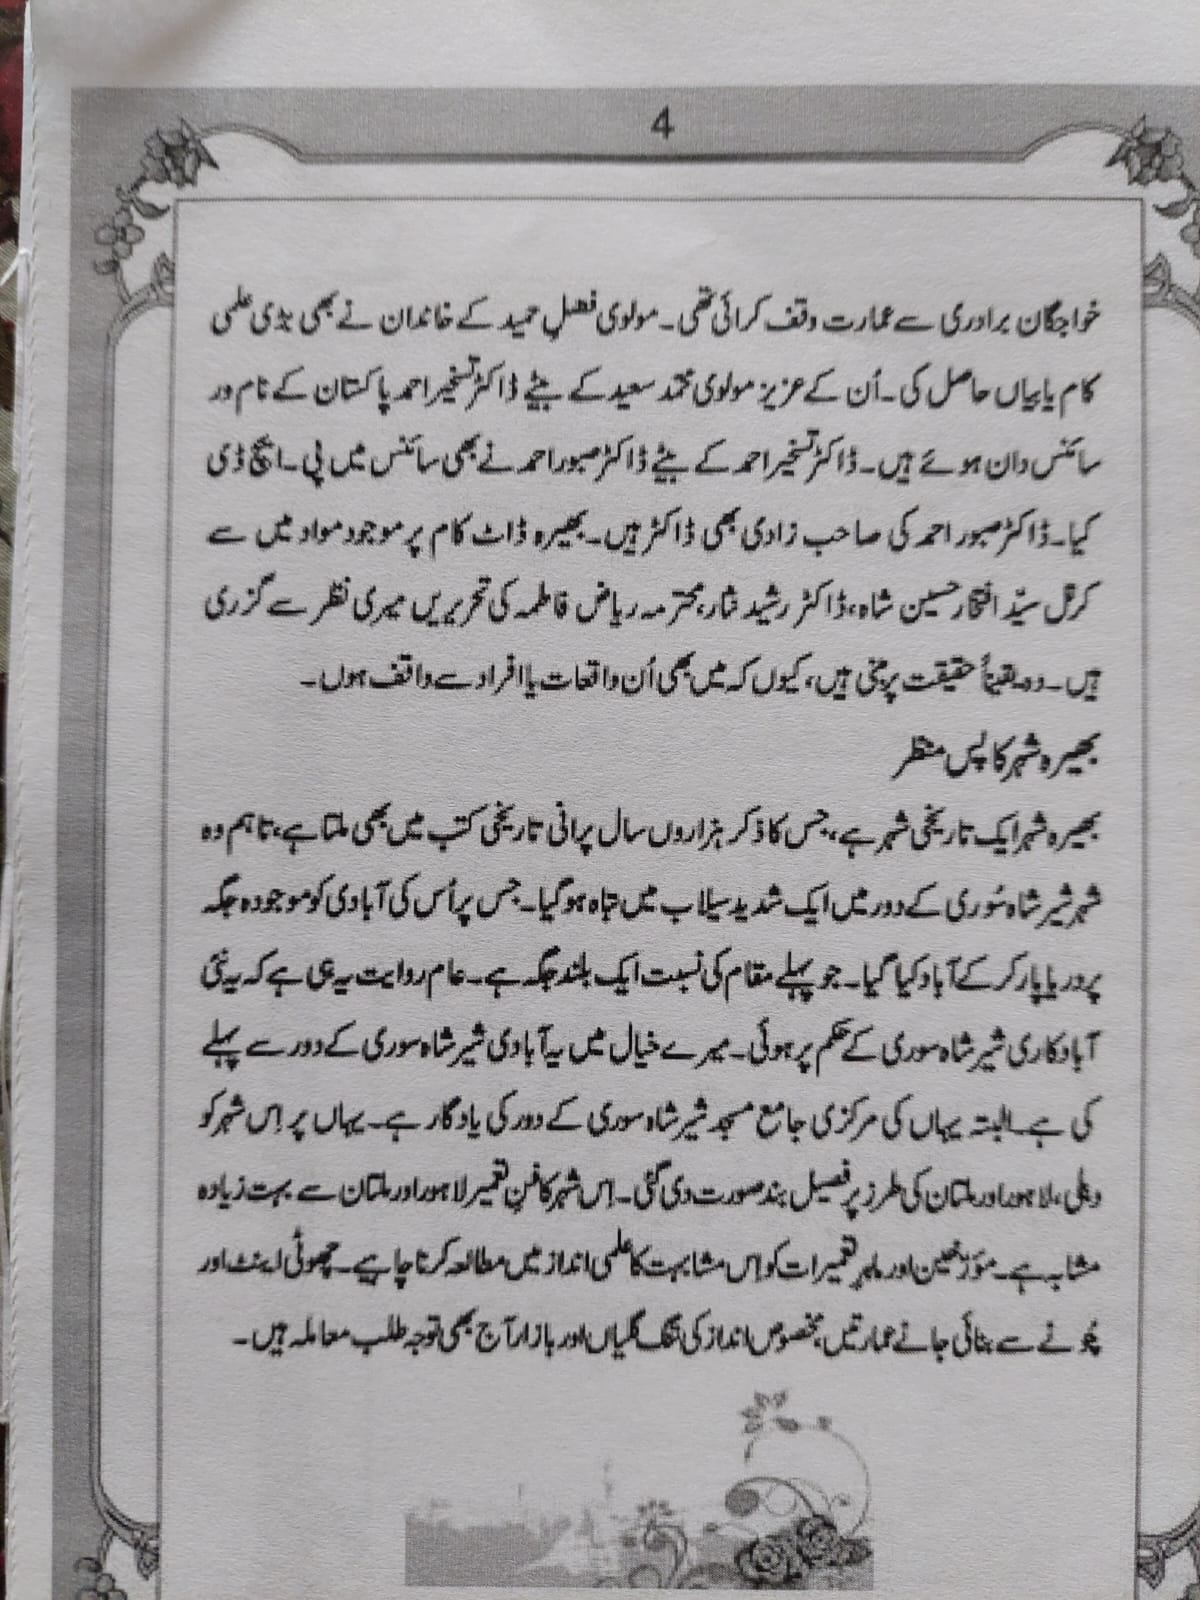 4
خواجگان برادری سے عمارت وقف کرائی تھی۔ مولوی فضلِ حمید کے خاندان نے بھی بڑی علمی
کام یابیاں حاصل کی۔ اُن کے عزیز مولوی محمد سعید کے بیٹے ڈاکٹر تسخیر احمد پاکستان کے نام ور
سائنس دان ہوئے ہیں۔ ڈاکٹر تسخیر احمد کے بیٹے ڈاکٹر صبور احمد نے بھی سائنس میں پی۔ ایچ ڈی
کیا۔ ڈاکٹر صبور احمد کی صاحب زادی بھی ڈاکٹر ہیں۔ بھیرہ ڈاٹ کام پر موجود مواد میں سے
کرنل سیّد افتخار حسین شاہ، ڈاکٹر رشید نثار، محترمہ ریاض فاطمہ کی تحریریں میری نظر سے گزری
ہیں۔ وہ یقیناً حقیقت پر مبنی ہیں، کیوں کہ میں بھی اُن واقعات یا افراد سے واقف ہوں۔
بھیرہ شہر کا پس منظر
بھیرہ شہر ایک تاریخی شہر ہے، جس کا ذکر ہزاروں سال پرانی تاریخی کتب میں بھی ملتا ہے، تاہم وہ
شہر شیر شاہ سُوری کے دور میں ایک شدید سیلاب میں تباہ ہو گیا۔ جس پر اُس کی آبادی کو موجودہ جگہ
پر دریا پار کر کے آباد کیا گیا۔ جو پہلے مقام کی نسبت ایک بلند جگہ ہے۔ عام روایت یہ ہی ہے کہ یہ نئی
آباد کاری شیر شاہ سوری کے حکم پر ہوئی۔ میرے خیال میں یہ آبادی شیر شاہ سوری کے دور سے پہلے
کی ہے۔ البتہ یہاں کی مرکزی جامع مسجد شیر شاہ سوری کے دور کی یادگار ہے۔ یہاں پر اِس شہر کو
دہلی، لاہور اور ملتان کی طرز پر فصیل بند صورت دی گئی۔ اِس شہر کا فنِ تعمیر لاہور اور ملتان سے بہت زیادہ
مشابہ ہے۔ مؤرّخین اور ماہرِ تعمیرات کو اِس مشابہت کا علمی انداز میں مطالعہ کرنا چاہیے۔ چھوٹی اینٹ اور
چُونے سے بنائی جانے عمارتیں، مخصوص انداز کی تنگ گلیاں اور بازار آج بھی توجہ طلب معاملہ ہیں۔